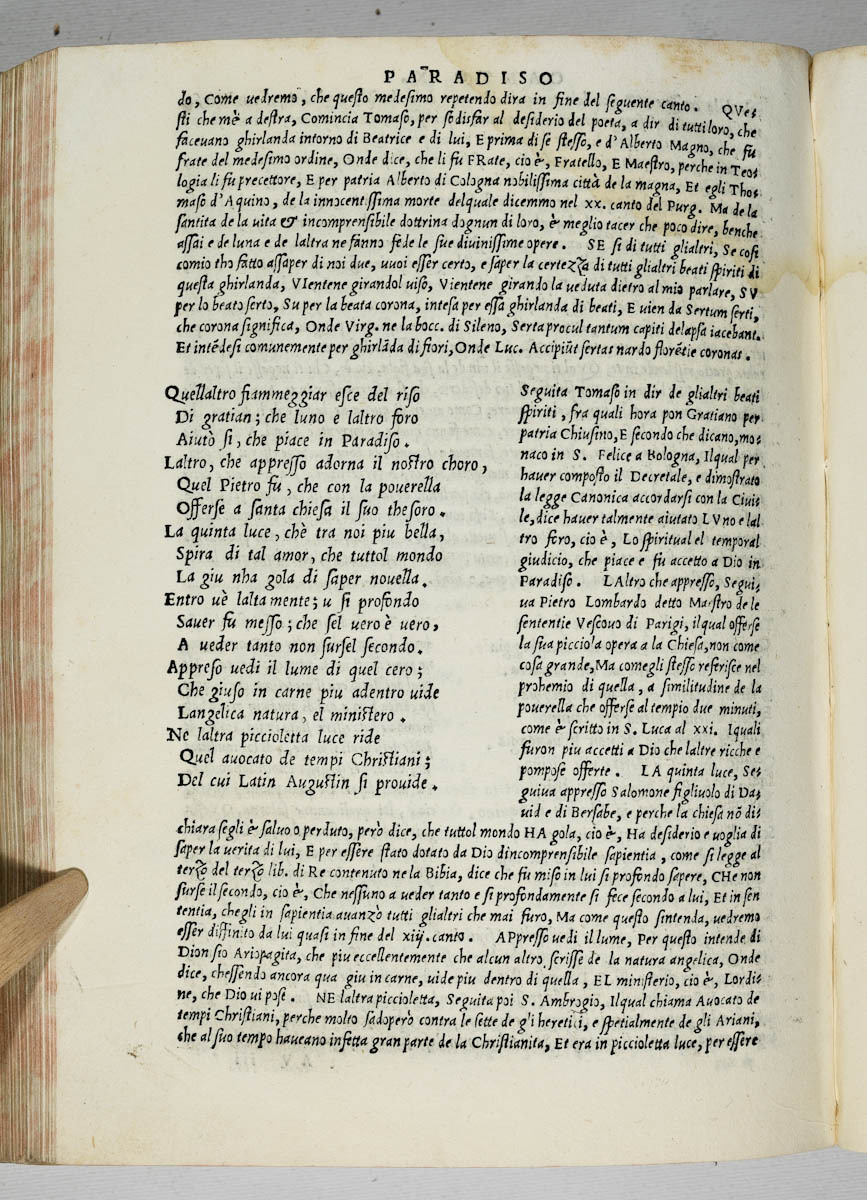 PARADISO
do, Come uedremo, che questo medesimo repetendo dira in fine del seguente canto. QVes
sti che mè a destra, Comincia Tomaso, per sodisfar al desiderio del poeta, a dir di tutti loro, che
faceuano ghirlanda intorno di Beatrice e di lui, E prima di se stesso, e d'Alberto Magno, che fu
frate del medesimo ordine, Onde dice, che li fu FRate, cio è, Fratello, E Maestro, perche in Teo-
logia li fu precettore, E per patria Alberto di Cologna nobilissima città de la magna, Et egli Tho-
maso d'Aquino, de la innocentissima morte del quale dicemmo nel xx. canto del Purg. Ma de la
santita de la uita & incomprensibile dottrina dognun di loro, è meglio tacer che poco dire, benche
assai e de luna e de laltra ne fanno fede le sue diuinissime opere. SE si di tutti glialtri, Se cosi
comio tho fatto assaper di noi due, uuoi esser certo, e saper la certezza di tutti glialtri beati spiriti di
questa ghirlanda, VIentene girandol uiso, Vientene girando la ueduta dietro al mio parlare, SV
per lo beato serto, Su per la beata corona, intesa per essa ghirlanda di beati, E uien da Sertum serti,
che corona significa, Onde Virg. ne la bocc. di Sileno, Serta procul tantum capiti delapsa iacebant.
Et intēdesi comunemente per ghirlāda di fiori, Onde Luc. Accipiūt sertas nardo florētie coronas.
Quellaltro fiammeggiar esce del riso
Di gratian; che luno e laltro foro
Aiutò si, che piace in Paradiso.
Laltro, che appresso adorna il nostro choro,
Quel Pietro fu, che con la pouerella
Offerse a santa chiesa il suo thesoro.
La quinta luce, chè tra noi piu bella,
Spira di tal amor, che tuttol mondo
La giu nha gola di saper nouella.
Entro uè laltamente; u si profondo
Sauer fu messo; che sel uero è uero,
A ueder tanto non sursel secondo.
Appreso uedi il lume di quel cero;
Che giuso in carne piu adentro uide
Langelica natura, el ministero.
Ne laltra piccioletta luce ride
Quel auocato de tempi Christiani;
Del cui Latin Augustin si prouide.
Seguita Tomaso in dir de glialtri beati
spiriti, fra quali hora pon Gratiano per
patria Chiusino, E secondo che dicano, mo-
naco in S. Felice a Bologna, Ilqual per
hauer composto il Decretale, e dimostrato
la legge Canonica accordarsi con la Ciui-
le, dice hauer talmente aiutato LVno e lal
tro foro, cio è, Lo spiritual el temporal
giudicio, che piace e fu accetto a Dio in
Paradiso. LAltro che appresso, Segui-
ua Pietro Lombardo detto Maestro de le
sententie Vescouo di Parigi, ilqual offerse
la sua picciola opera a la Chiesa, non come
cosa grande, Ma comegli stesso referisce nel
prohemio di quella, a similitudine de la
pouerella che offerse al tempio due minuti,
come è scritto in S. Luca al xxi. Iquali
furon piu accetti a Dio che laltre ricche e
pompose offerte. LA quinta luce, Se-
guiua appresso Salomone figliuolo di Da-
uid e di Bersabe, e perche la chiesa nō di-
chiara segli è saluo o perduto, però dice, che tuttol mondo HA gola, cio è, Ha desiderio e uoglia di
saper la uerita di lui, E per essere stato dotato da Dio dincomprensibile sapientia, come si legge al
terzo del terzo lib. di Re contenuto ne la Bibia, dice che fu miso in lui si profondo sapere, CHe non
surse il secondo, cio è, Che nessuno a ueder tanto e si profondamente si fece secondo a lui, Et in sen
tentia, chegli in sapientia auanzo tutti glialtri che mai furo, Ma come questo sintenda, uedremo
esser diffinito da lui quasi in fine del xiij. canto. APpresso uedi il lume, Per questo intende di
Dionsio Ariopagita, che piu eccellentemente che alcun altro scrisse de la natura angelica, Onde
dice, chessendo ancora qua giu in carne, uide piu dentro di quella, EL ministerio, cio è, Lordi-
ne, che Dio ui pose. NE laltra piccioletta, Seguita poi S. Ambrogio, Ilqual chiama Auocato de
tempi Christiani, perche molto sadoperò contra le sette de gli heretici, e spetialmente de gli Ariani,
che al suo tempo haueano infetta gran parte de la Christianita, Et era in piccioletta luce, per essere